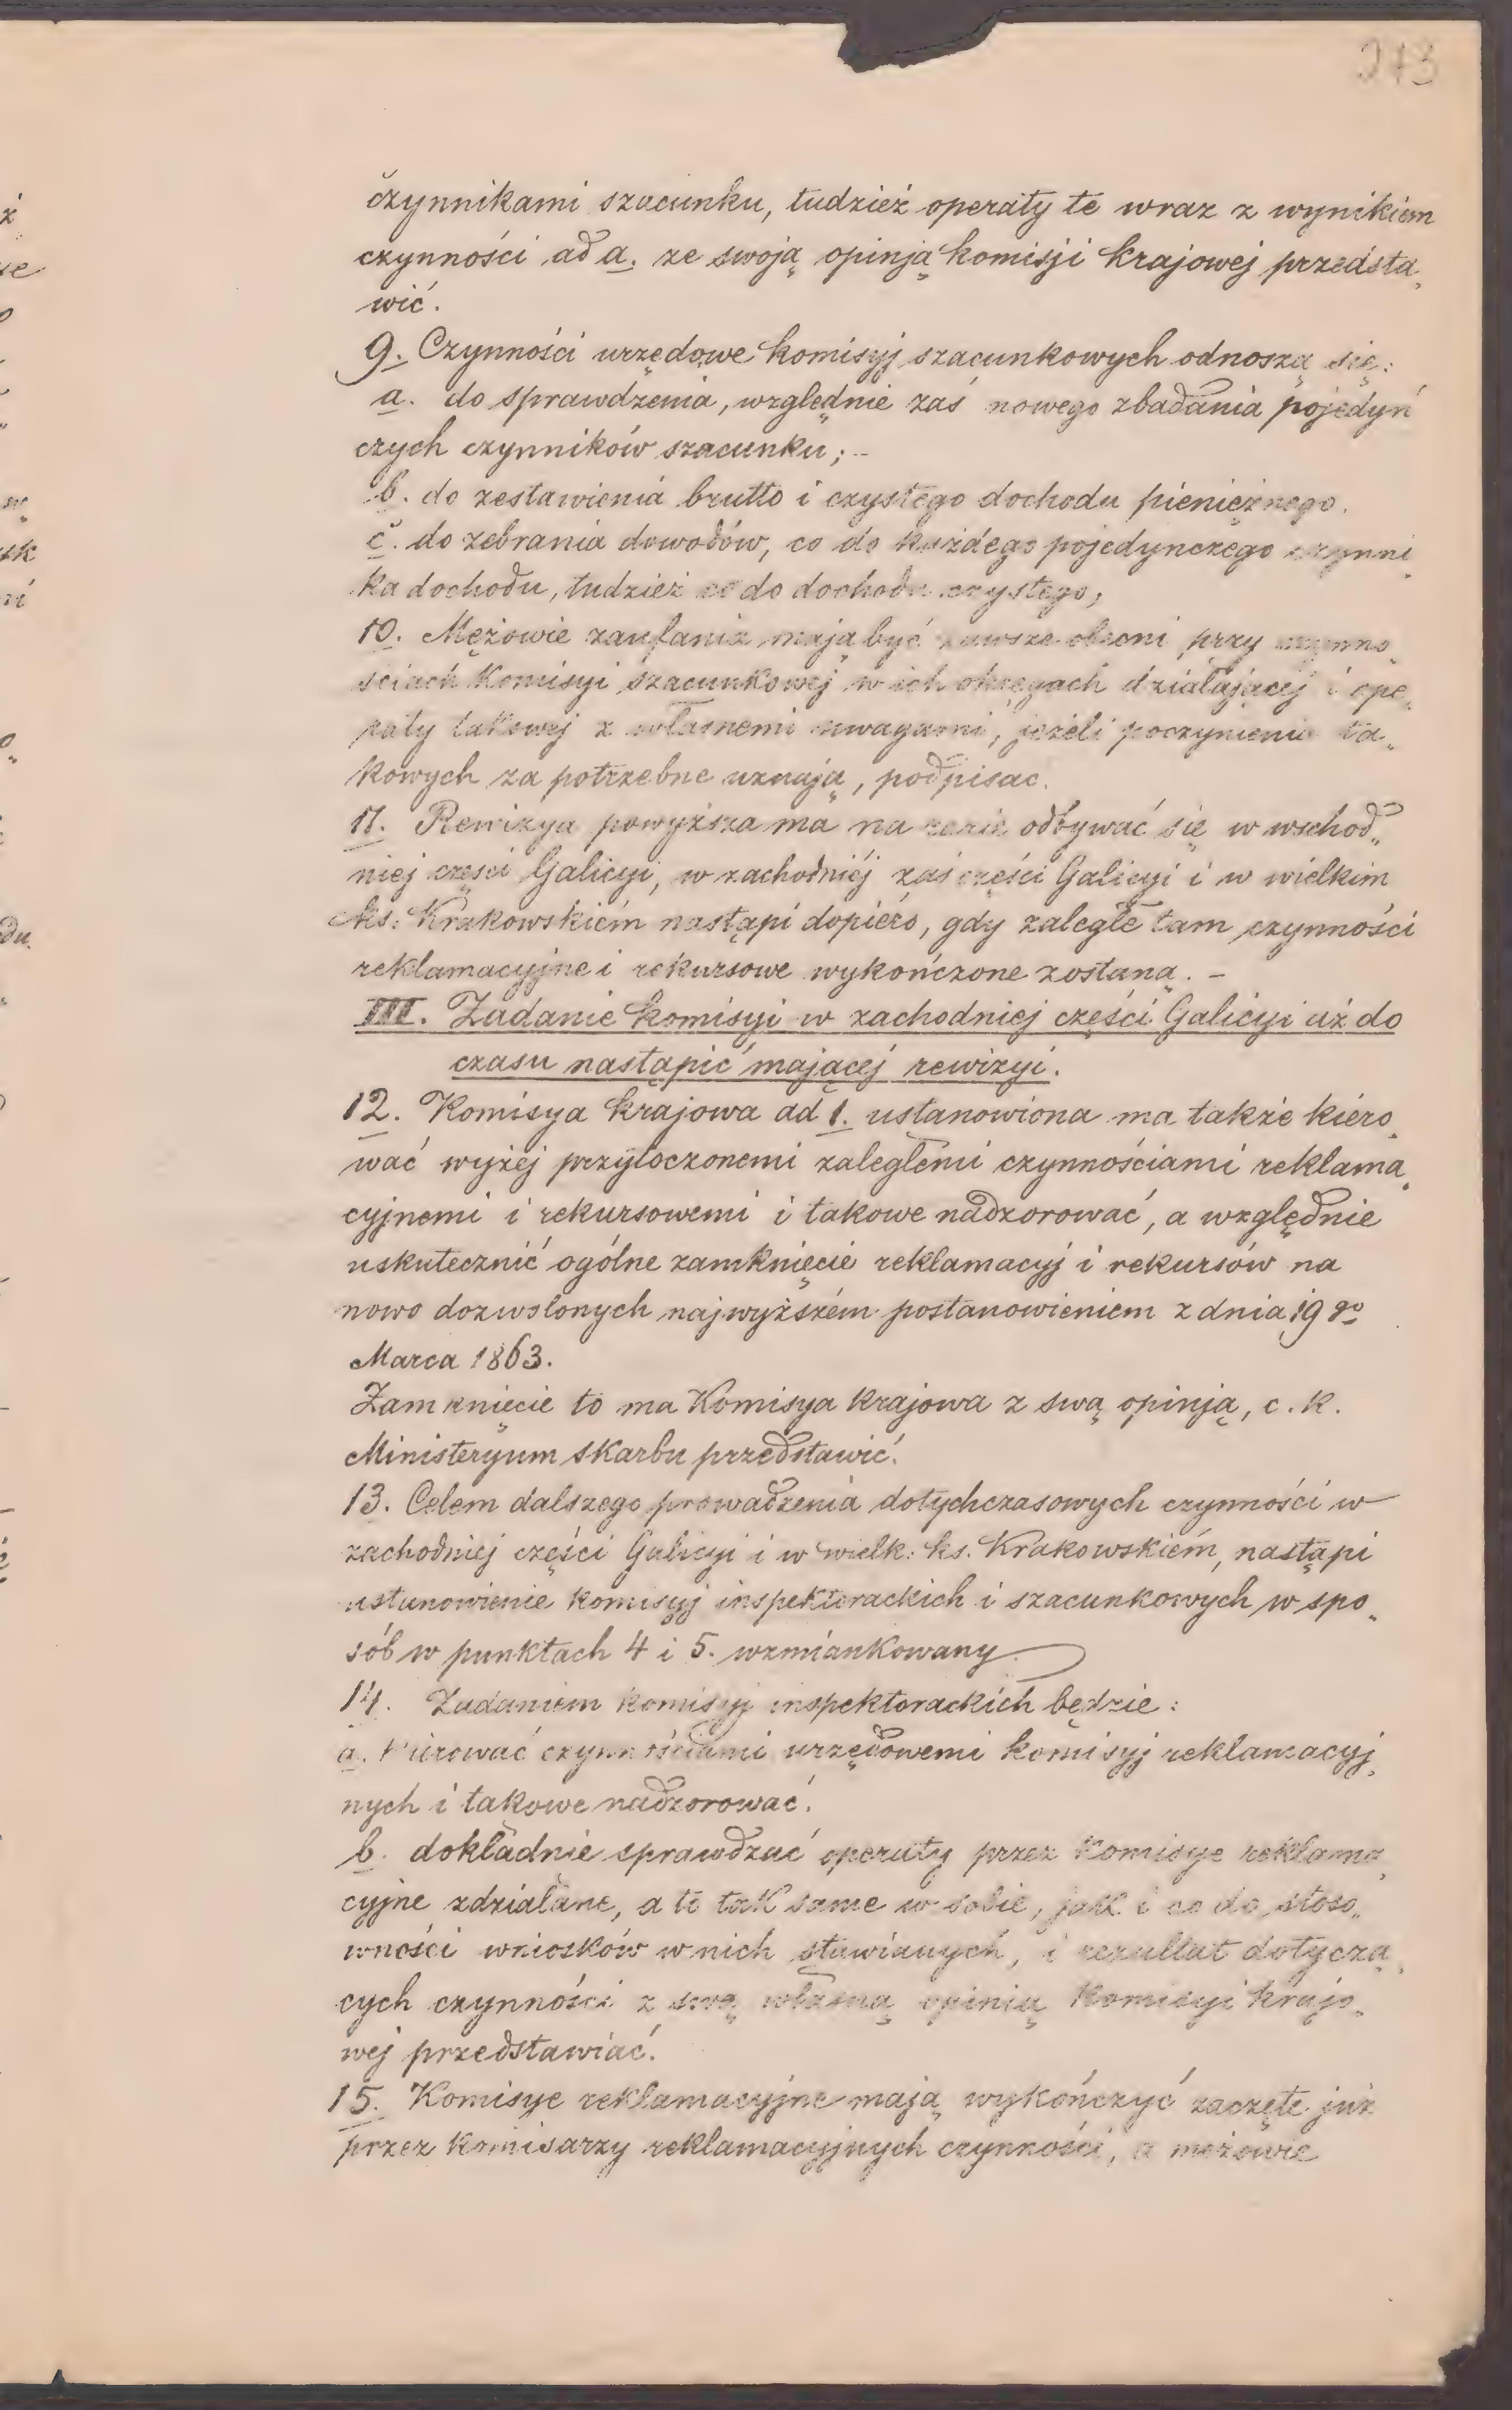 273
czynnikami szacunku, tudzież operaty te wraz z wynikiem
czynności ad a. ze swoją opinją komisji krajowej przedsta„
wić.
9. Czynności urzędowe komisyj szacunkowych odnoszą się:
a. do sprawdzenia, względnie zaś nowego zbadania pojedyń
czych czynników szacunku; –
b. do zestawienia brutto i czystego dochodu pieniężnego.
c. do zebrania dowodów, co do każdego pojedynczego czynni„
ka dochodu, tudzież co do dochodu czystego;
10. Mężowie zaufania mają być zawsze obecni przy czynno„
ściach Komisyi szacunkowej w ich okręgach działającej i ope„
raty takowej z własnemi uwagami, jeżeli poczynienie ta„
kowych za potrzebne uznają, podpisac.
11. Rewizya powyższa ma na razie odbywać się w wschod„
niej części Galicyi, w zachodniéj zaś części Galicyi i w wielkim
ks: Krakowskiém nastąpi dopiéro, gdy zaległe tam czynności
reklamacyjne i rekursowe wykończone zostaną. –
III. Zadanie komisyi w zachodniej części Galicyi aż do
czasu nastąpić mającej rewizyi.
12. Komisya krajowa ad 1. ustanowiona ma także kiéro„
wać wyżej przytoczonemi zaległemi czynnościami reklama„
cyjnemi i rekursowemi i takowe nadzorować, a względnie
uskutecznić ogólne zamknięcie reklamacyj i rekursów na
nowo dozwolonych najwyższém postanowieniem z dnia 19 go
Marca 1863.
Zamknięcie to ma Komisya krajowa z swą opinją, c. k.
Ministeryum skarbu przedstawić.
13. Celem dalszego prowadzenia dotychczasowych czynności w
zachodniej części Galicyi i w wielk: ks. Krakowskiém, nastąpi
ustanowienie komisyj inspektorackich i szacunkowych w spo„
sób w punktach 4 i 5. wzmiankowany.
14. Zadaniem komisyj inspektorackich będzie:
a. kiérować czynnościami urzędowemi komisyj reklamacyj„
nych i takowe nadzorować.
b. dokładnie sprawdzać operaty przez Komisye reklama„
cyjne zdziałane, a to tak same w sobie, jak i co do stoso„
wności wniosków w nich stawianych, i rezultat dotyczą„
cych czynności z swą własną opinią Komisyi krajo„
wej przedstawiać.
15. Komisye reklamacyjne mają wykończyć zaczęte już
przez komisarzy reklamacyjnych czynności, a mężowie